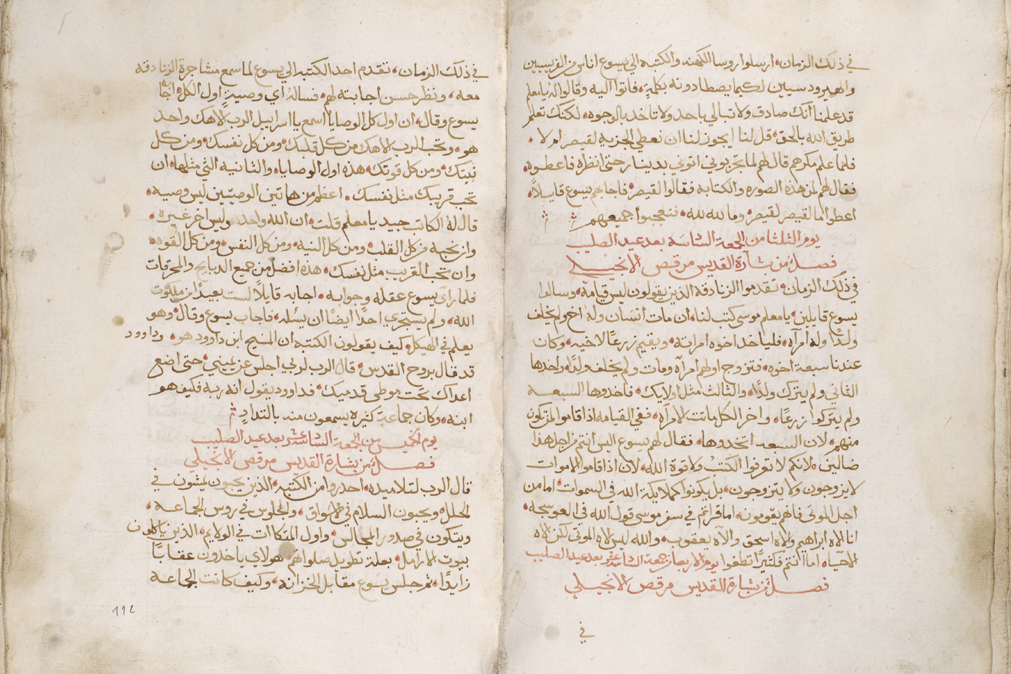 في ذلك الزمان، ارسلوا روسا الكهنه والكتبه الي يسوع اناس من الفريسيين
واهيرودسيين لكيما يصطادونه بكلمة، فاتوا اليه وقالوا له يا معلم
قد علمنا انك صادق ولا تبالي باحد ولا تاخد بالوجوه، لكنك تعلم
طريق الله بالحق، قل لنا ايجوز لنا ان نعطي الجزية لقيصر ام لا،
فلما علم مكرهم قال لهم لما تجربوني، اتوني بدينار حتى انظره فاعطوه،
فقال لهم لمن هذه الصوره والكتابه فقالوا لقيصر، فاجابهم يسوع قايلاً،
اعطوا ما لقيصر لقيصر، وما لله لله، فتعجبوا جميعهم
يوم الثلثا من الجمعة الثانية بعد عيد الصليب
فصل من بشارة القديس مرقص الانجيلي
في ذلك الزمان، تقدموا الزنادقة الذين يقولون ليس قيامة، وسالوا
يسوع قايلين، يا معلم موسى كتب لنا، ان مات انسان وله اخ ولم يخلف
ولدًا وله امرآة، فلياخد اخوه امراته، ويقيم زرعًا لاخيه، وكان
عندنا سبعة اخوه، فتزوج اولهم امرآة ومات ولم يخلف ولدًا واخدها
الثاني ولم يترك ولدًا، والثالث مثل ذلك، فاخدوها السبعه
ولم يتركوا زرعًا، واخر الكل ماتت الامرآة، ففي القيامه اذا قاموا لمن تكون
منهم، لان السبعه اتخدوها، فقال لهم يسوع اليس انتم من اجل هذا
ضالين، لانكم لا تعرفوا الكتب ولا قوة الله، لان اذا قاموا الاموات
لا يزوجون ولا يتزوجون، بل يكونوا كملايكة الله في السموات، اما من
اجل الموتى فانهم يقومون، اما قراتم في سفر موسى قول الله في العوسجه،
انا الاه ابراهيم والاه اسحق والآه يعقوب، والله ليس الاه الموتى لكن الاه
الاحياء، اما انتم فكثيرًا تطغوا يوم الاربعا من جمعة الثانية بعد عيد الصليب
فصل من بشارة القديس مرقص الانجيلي
في
في ذلك الزمان، تقدم احد الكتبه الى يسوع لما سمع مشاجرة الزنادقه
معه، ونظر حسن اجابته لهم، فساله اي وصيةٍ اول الكل، اجابه
يسوع وقال، ان اول كل الوصايا اسمع يا اسراييل الرب الاهك واحد
هو، وتحب الرب الاهك من كل قلبك، ومن كل نفسك، ومن كل
نيتك، ومن كل قوتك، هذه اول الوصايا، والثانيه التي مثلها، ان
تحب قريبك مثل نفسك، اعظم من هاتين الوصيتين ليس وصيه،
قال له الكاتب جيد يا معلم قلت، ان الله واحد، وليس اخر غيره،
وان تحبه من كل القلب، ومن كل النيه، ومن كل النفس، ومن كل القوه،
وان تحب القريب مثل نفسك، هذه افضل من جميع الدبايح والمحرقات
فلما راى يسوع عقله وجوابه، اجابه قايلاً لست بعيدًا من ملكوت
الله، ولم يستجرى احدًا ايضًا ان يسله، فاجاب يسوع وقال، وهو
يعلم في الهيكل، كيف يقولون الكتبه ان المسيح ابن داوود هو، وداوود
قد قال بروح القدس، قال الرب لربي اجلس عن يميني، حتى اضع
اعداك تحت موطى قدميك، فداوود يقول انه ربه فكيف هو
ابنه، وكان جماعة كثيرة يسمعون منه بالتداد
يوم الخميس من الجمعة الثانية عشر بعد عيد الصليب
فصل من بشارة القديس مرقص الانجيلي
قال الرب لتلاميده، احدروا من الكتبه، الذين يحبون يمشون في
الحلل، ويحبون السلام في الاسواق، والجلوس في روس الجماعة،
ويتكون في صدور المجالس، واول المتكات في الولايم، الذين ياكلون
بيوت الارامل، بعلة تطويل صلواتهم، هولاي ياخدون عقابًا
زايدًا، ثم جلس يسوع مقابل الخزانه، وكيف كانت الجماعة
192